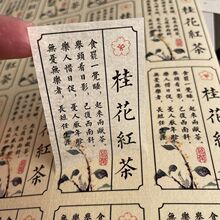 桂花紅茶
食罷一覺睡，起來兩甌茶。
舉頭看日影，已復西南斜。
樂人惜日促，憂人厭年賒。
無憂無樂者，長短任生涯。